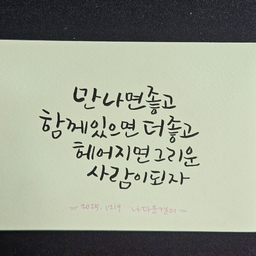 만나면좋고
함께있으면 더좋고
헤어지면그리운
사람이되자